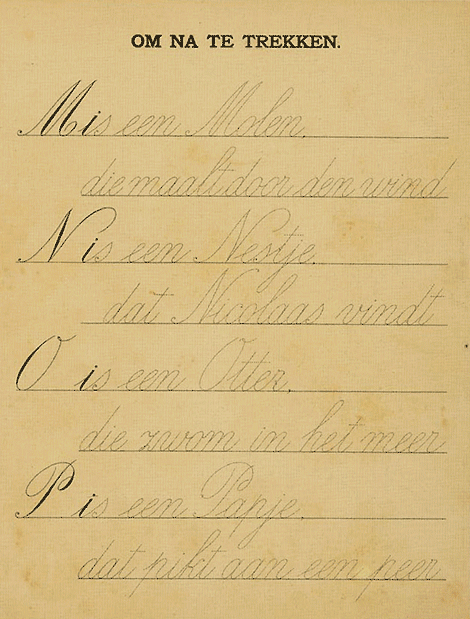 OM NA TE TREKKEN.
M is een Molen,
die maalt door den wind
N is een Nestje,
dat Nicolaas vindt
O is een Otter,
die zwom in het meer
P is een Papje,
dat pikt aan een peer